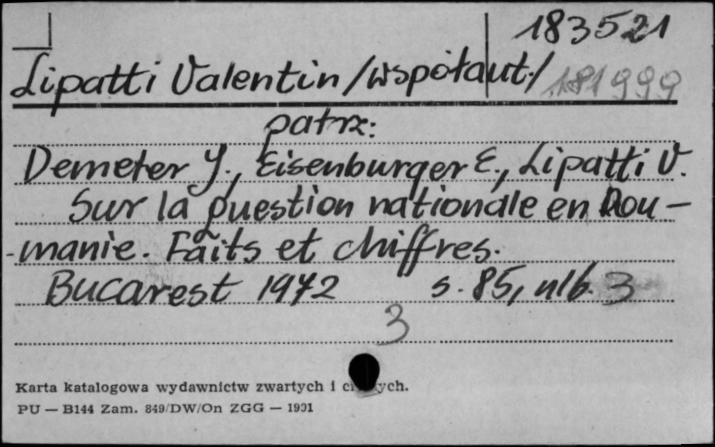 183521
Lipatti Valentin /współaut./ 181999
patrz:
Demeter J., Eisenburger E., Lipatti V.
Sur la question nationale en Rou-
-manie. Faits et chiffres.
Bucarest 1972 s. 85, nlb. 3
3
Karta katalogowa wydawnictw zwartych i ch
PU — B144 Zam. 849/DW/On ZGG — 1991